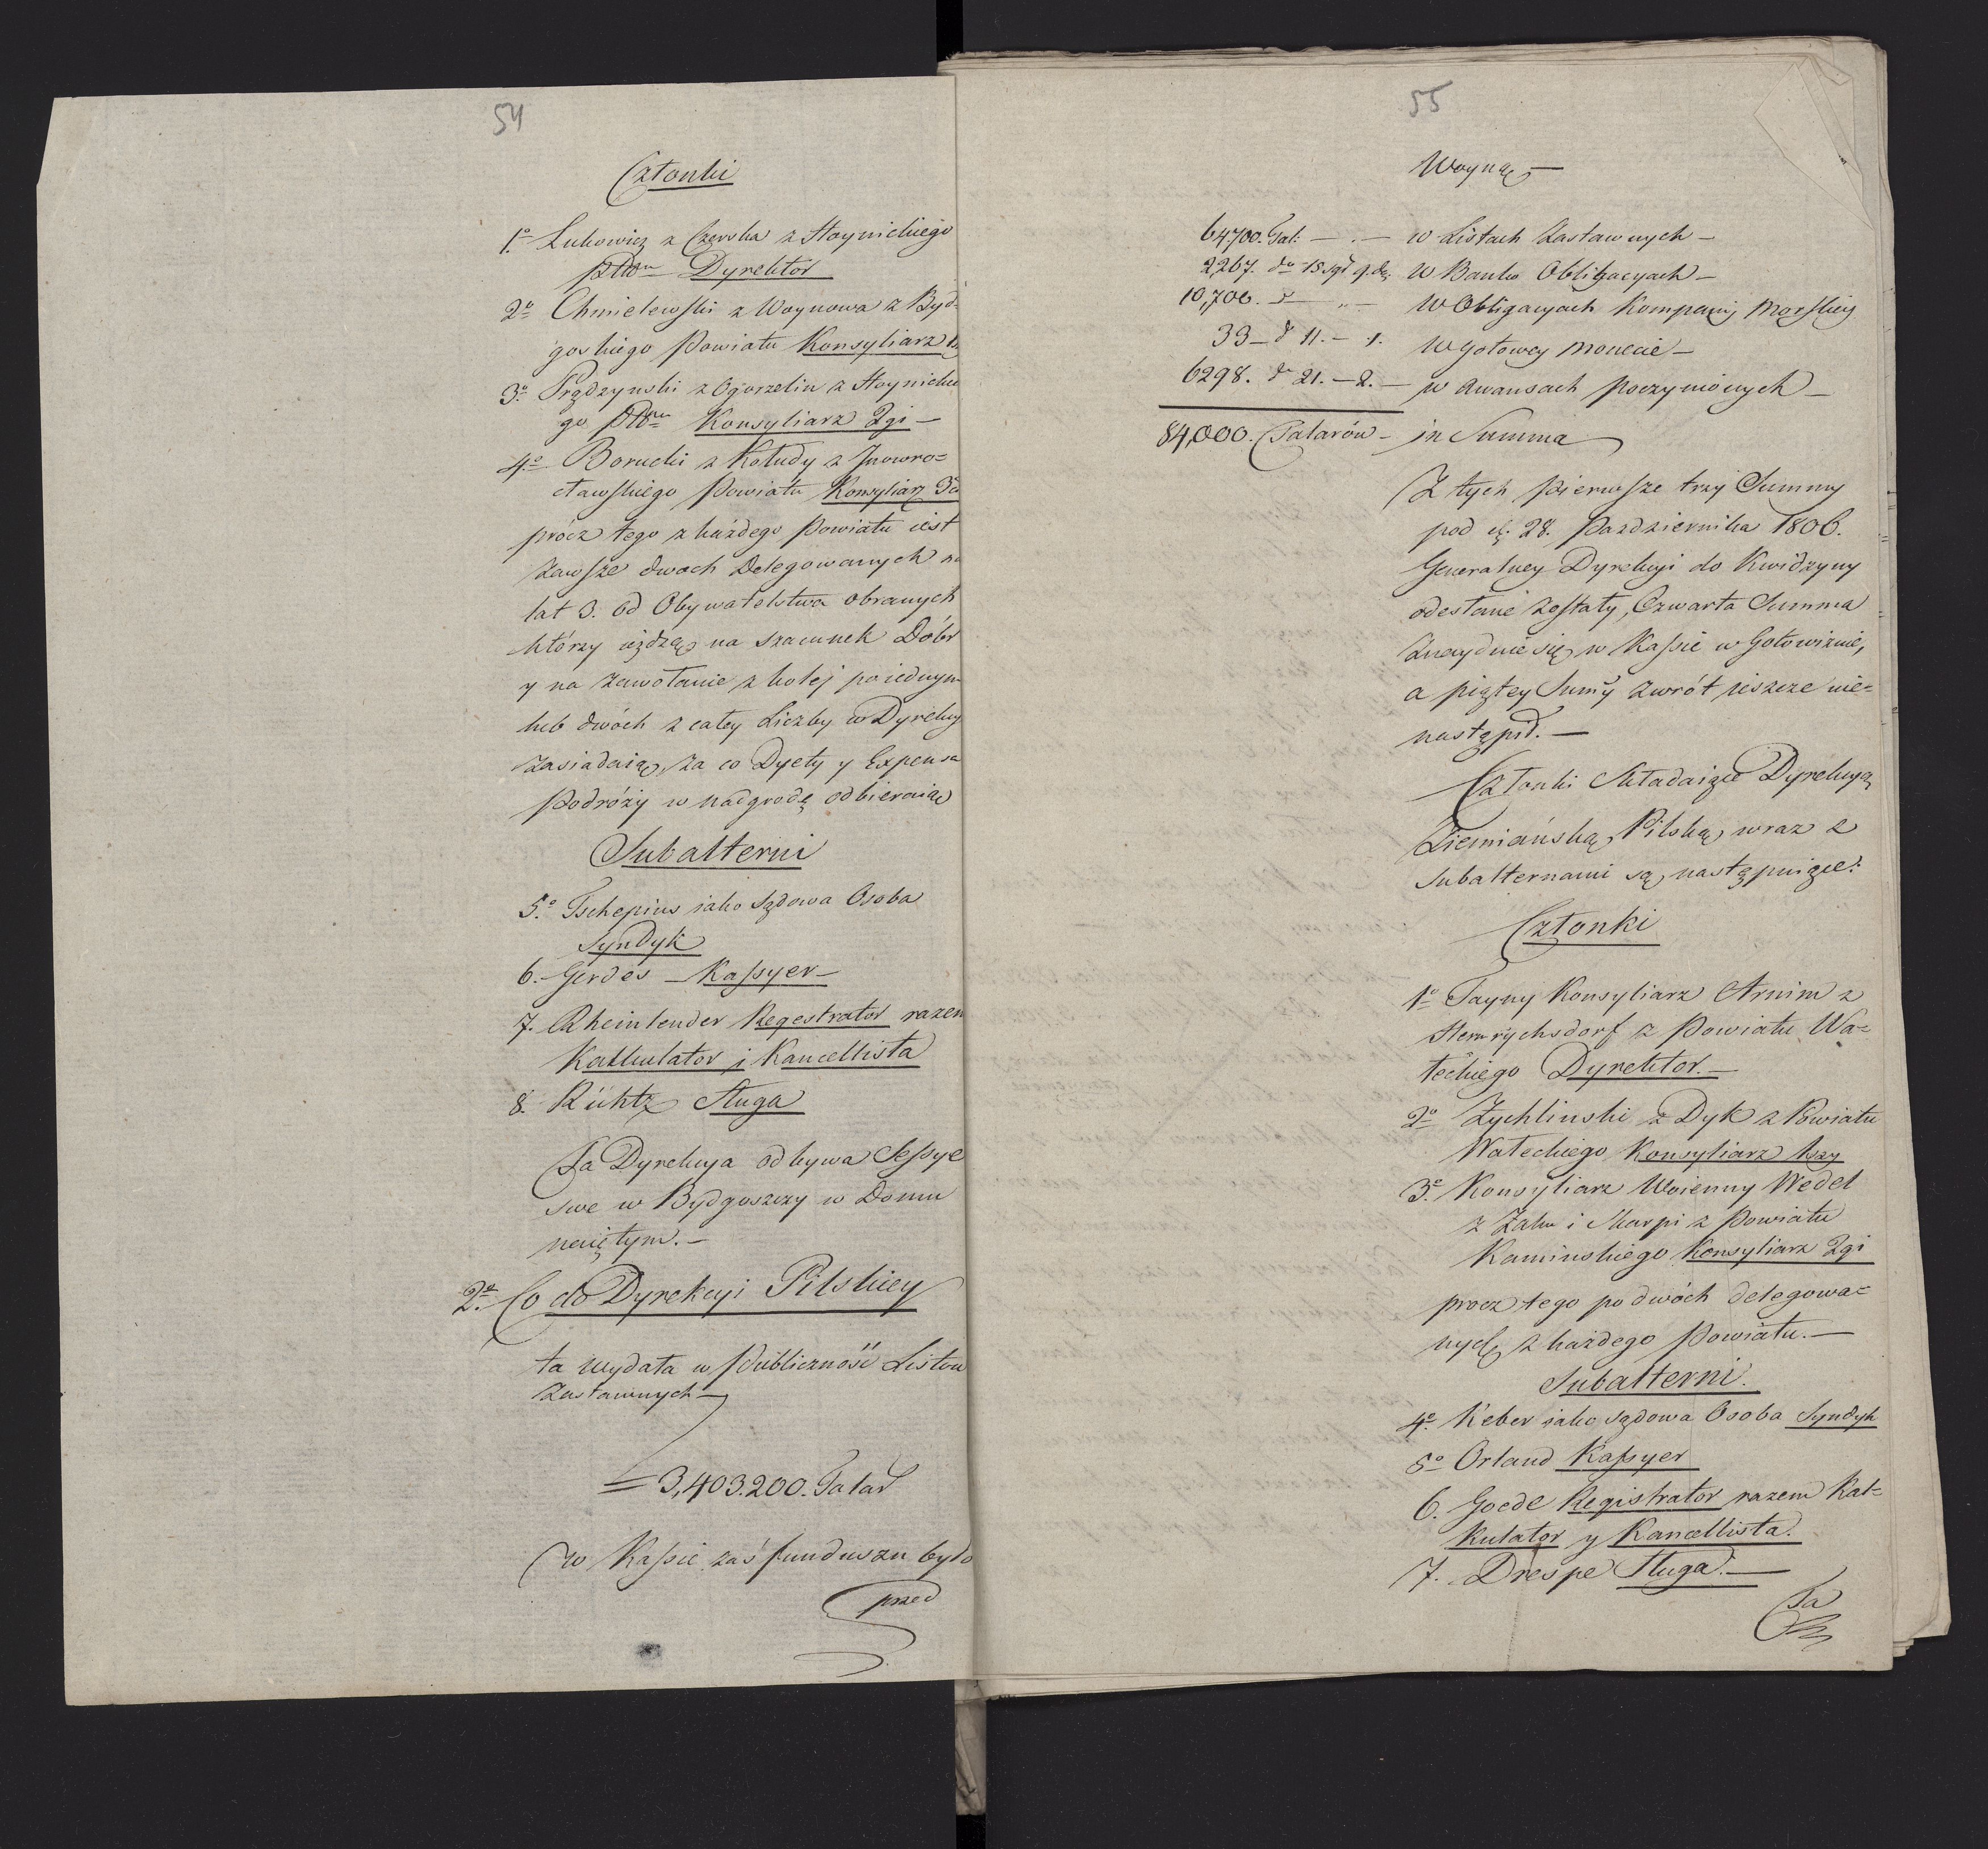 54
Członki
1º Lukowicz z Czerska z Hoynickiego
Pttu Dyrektor
2º Chmielewski z Woynowa z Byd-
goskiego Powiatu Konsyliarz
3º Prądzynski z Ogorzelin z Hoynickie
go Pttu Konsyliarz 2gi —
4º Borucki z Kołudy z Jnowro=
cławskiego Powiatu Konsyliarz 3ci
prócz tego z każdego Powiatu iest
zawsze dwoch Delegowanych na
lat 3. od Obywatelstwa obranych
którzy ieżdżą na szacunek Dóbr
y na zawołanie z kolej poiednym
lub dwóch z całey Liczby w Dyrekcy
zasiadaią, za co Dyety y Expensa
Podróży w nadgrodę odbieraią
Subalterni
5º Tschepius iako Sądowa Osoba
Syndyk
6. Gerdes — Kassyer —
7. Rheinlender Regestrator razem
Kalkulator i Kancellista
8. Rühtz Sługa
Ta Dyrekcya odbywa Sessye
swe w Bydgoszczy w Domu
naiętym. —
2º Co do Dyrekcyi Pilskiey
ta wydała w publiczność Listow
Zastawnych —
= 3,403.200. Talar
w Kassie zaś funduszu było
przed
55
Woyną —
64700. Tal: — . — w Listach Zastawnych —
2,267. do 15 sgr 9. d. w Banko Obligacyach —
10,700. — „ — W Obligacyach Kompanij Morskiey
33 — d 11. — 1. W gotowey Monecie —
6298. do 21. — 2. — w Awansach poczynionych —
84,000. Talarów — in Summa
Z tych pierwsze trzy Summy
pod d. 28. Października 1806.
Generalney Dyrekcyi do Kwidzyny
odesłane zostały, Czwarta Summa
znayduie się w Kassie w Gotowiznie,
a piątey Sumy zwrót ieszcze nie=
nastąpił. —
Członki Składaiące Dyrekcyą
Ziemiańską Pilską wraz z
Subalternami są następuiące:
Członki
1º Tayny Konsyliarz Arnim z
Henrychsdorf z Powiatu Wa=
łeckiego Dyrektor. —
2º Zychlinski z Dyk z Powiatu
Wałeckiego Konsyliarz 1szy
3º Konsyliarz Woienny Wedel
z Zahn i Skarpi z Powiatu
Kaminskiego Konsyliarz 2gi
procz tego po dwóch delegowa=
nych z każdego Powiatu. —
Subalterni.
4º Keber iako sądowa Osoba Syndyk
5º Orland Kassyer
6. Goede Registrator razem Kal=
kulator y Kancellista.
7. Drespe Sługa. —
Ta